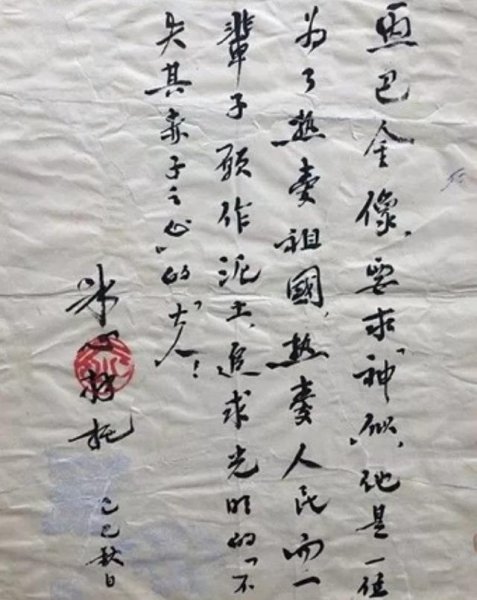 画巴金像，要求“神似”，他是一位
为了热爱祖國，热爱人民而一
輩子願作泥土，追求光明的“不
失其赤子之心”的“大人”！
冰心拜托
己巳秋日